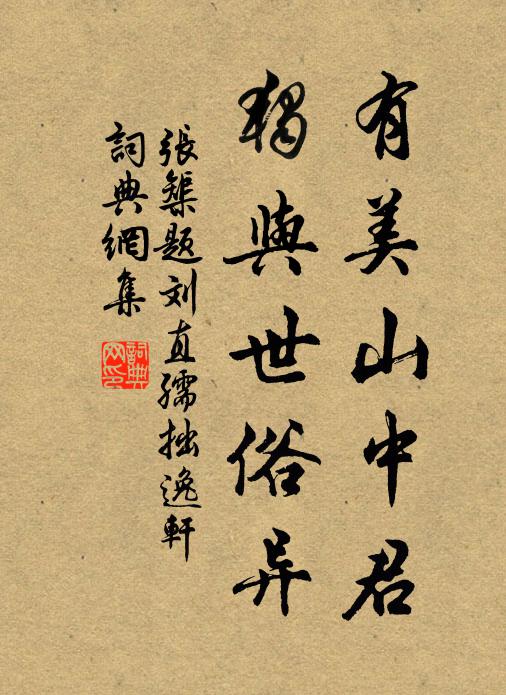 有美山中君
獨與世俗异
張榘题刘直孺拙逸軒
詞典網集
詞典网印